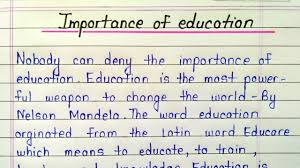 Importance of education
Nobody can deny the importance of
education. Education is the most power-
ful weapon to change the world - By
Nelson Mandela. The word education
orginated from the Latin word Educare
which means to educate, to train,
knowledge. Education is